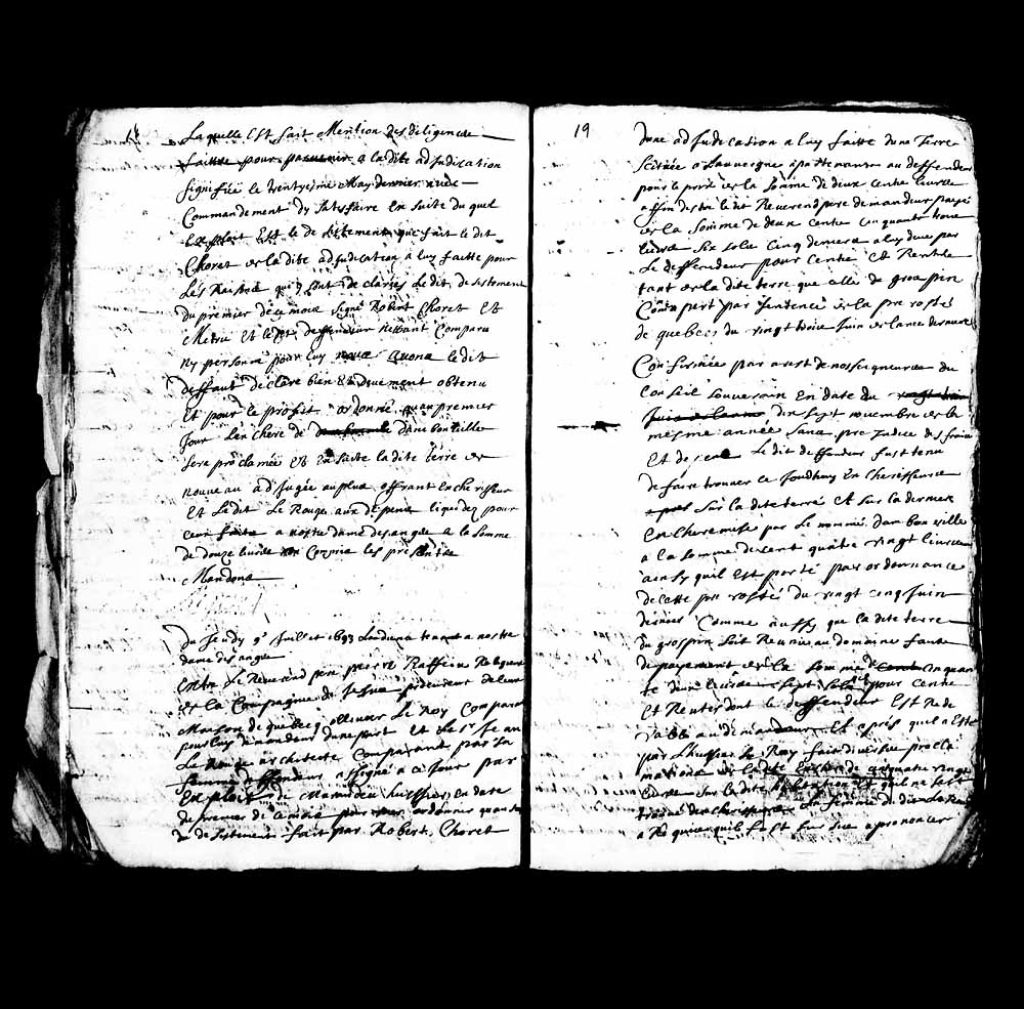 Laquelle Est fait Mention des diligences
faittes pour parvenir a la dite adjudication
signifiée le trentyesme May dernier avec
Commandement dy satisfaire En suitte du quel
Exploit Est le desistement que fait le dit
Choret de la dite adjudication a luy faitte pour
Les Raisons qui y sont declarées Le dit desistement
du premier de ce mois signé Robert Choret Et
Metru Et le dit deffendeur nestant Comparu
ny personne pour luy nous avons le dit
deffaut declaré bien Et duement obtenu
Et pour le profit ordonné quau premier
Jour lenchere de danbonville
sera proclamée Et En suitte la dite terre de
nouveau adjugée au plus offrant Encherisseur
Et Le dit Le Rouge aux depens liquidez pour
a nostre dame des anges a la somme
de douze livres Compris les presentes
Mandons
Du Jeudy 9e Juillet 1693 Laudiance tenant a nostre
dame des anges
Entre Le Reverend pere pierre Raffeix Religieux
de la Compagnie de Jesus procureur de leur
Maison de quebecq ollivier Le Roy Comparant
pour luy demandeur dune part Et Le Sr Jean
Le Rouge architecte Comparant par sa
femme deffendeur assigné a ce Jour par
Exploit de Marandeau huissier En datte
du premier de ce mois ordonner quau
du desistement fait par Robert Choret
19
dune adjudication a luy faitte dune Terre
Scituée a Lauvergne apartenante au deffendeur
pour le prix de la somme de deux cents livres
affin destre le dit Reverend pere demandeur payé
de la somme de deux cents cinquante trois
livres six sols cinq deniers a luy deue par
Le deffendeur pour Cents Et Rentes
tant de la dite terre que celle de grospin
Conq par Sentence de la prevosté
de quebecq du vingt trois Juin de lannée derniere
Confirmée par arrest de nosseigneurs du
Conseil Souverain En date du
dix sept novembre de la
mesme année sans prejudice des frais
Et de Le dit deffendeur fust tenu
de faire trouver ce Jourdhuy En cherisseurs
sur la dite terre Et sur la derniere
Enchere mise par Le nommé danbonville
a la somme de cent quatre vingt livres
ainsy quil Est porté par ordonnance
de cette prevosté du vingt cinq Juin
dernier Comme aussy que la dite terre
du grospin soit Reunie au domaine faute
de payement de la somme de Cinquan
te deux livres sept sols pour Cents
Et Rentes dont le deffendeur Est Rede
vable au demandeur Et apres quil a Esté
par Lhuissier Le Roy fait diverses procla
mations de la dite Enchere de quatre vingt
livres sur la dite habitation Et quil ne sest
trouvé dencherisseurs La femme du dit Le Rouge
a Requis quil fust sursis a prononcer